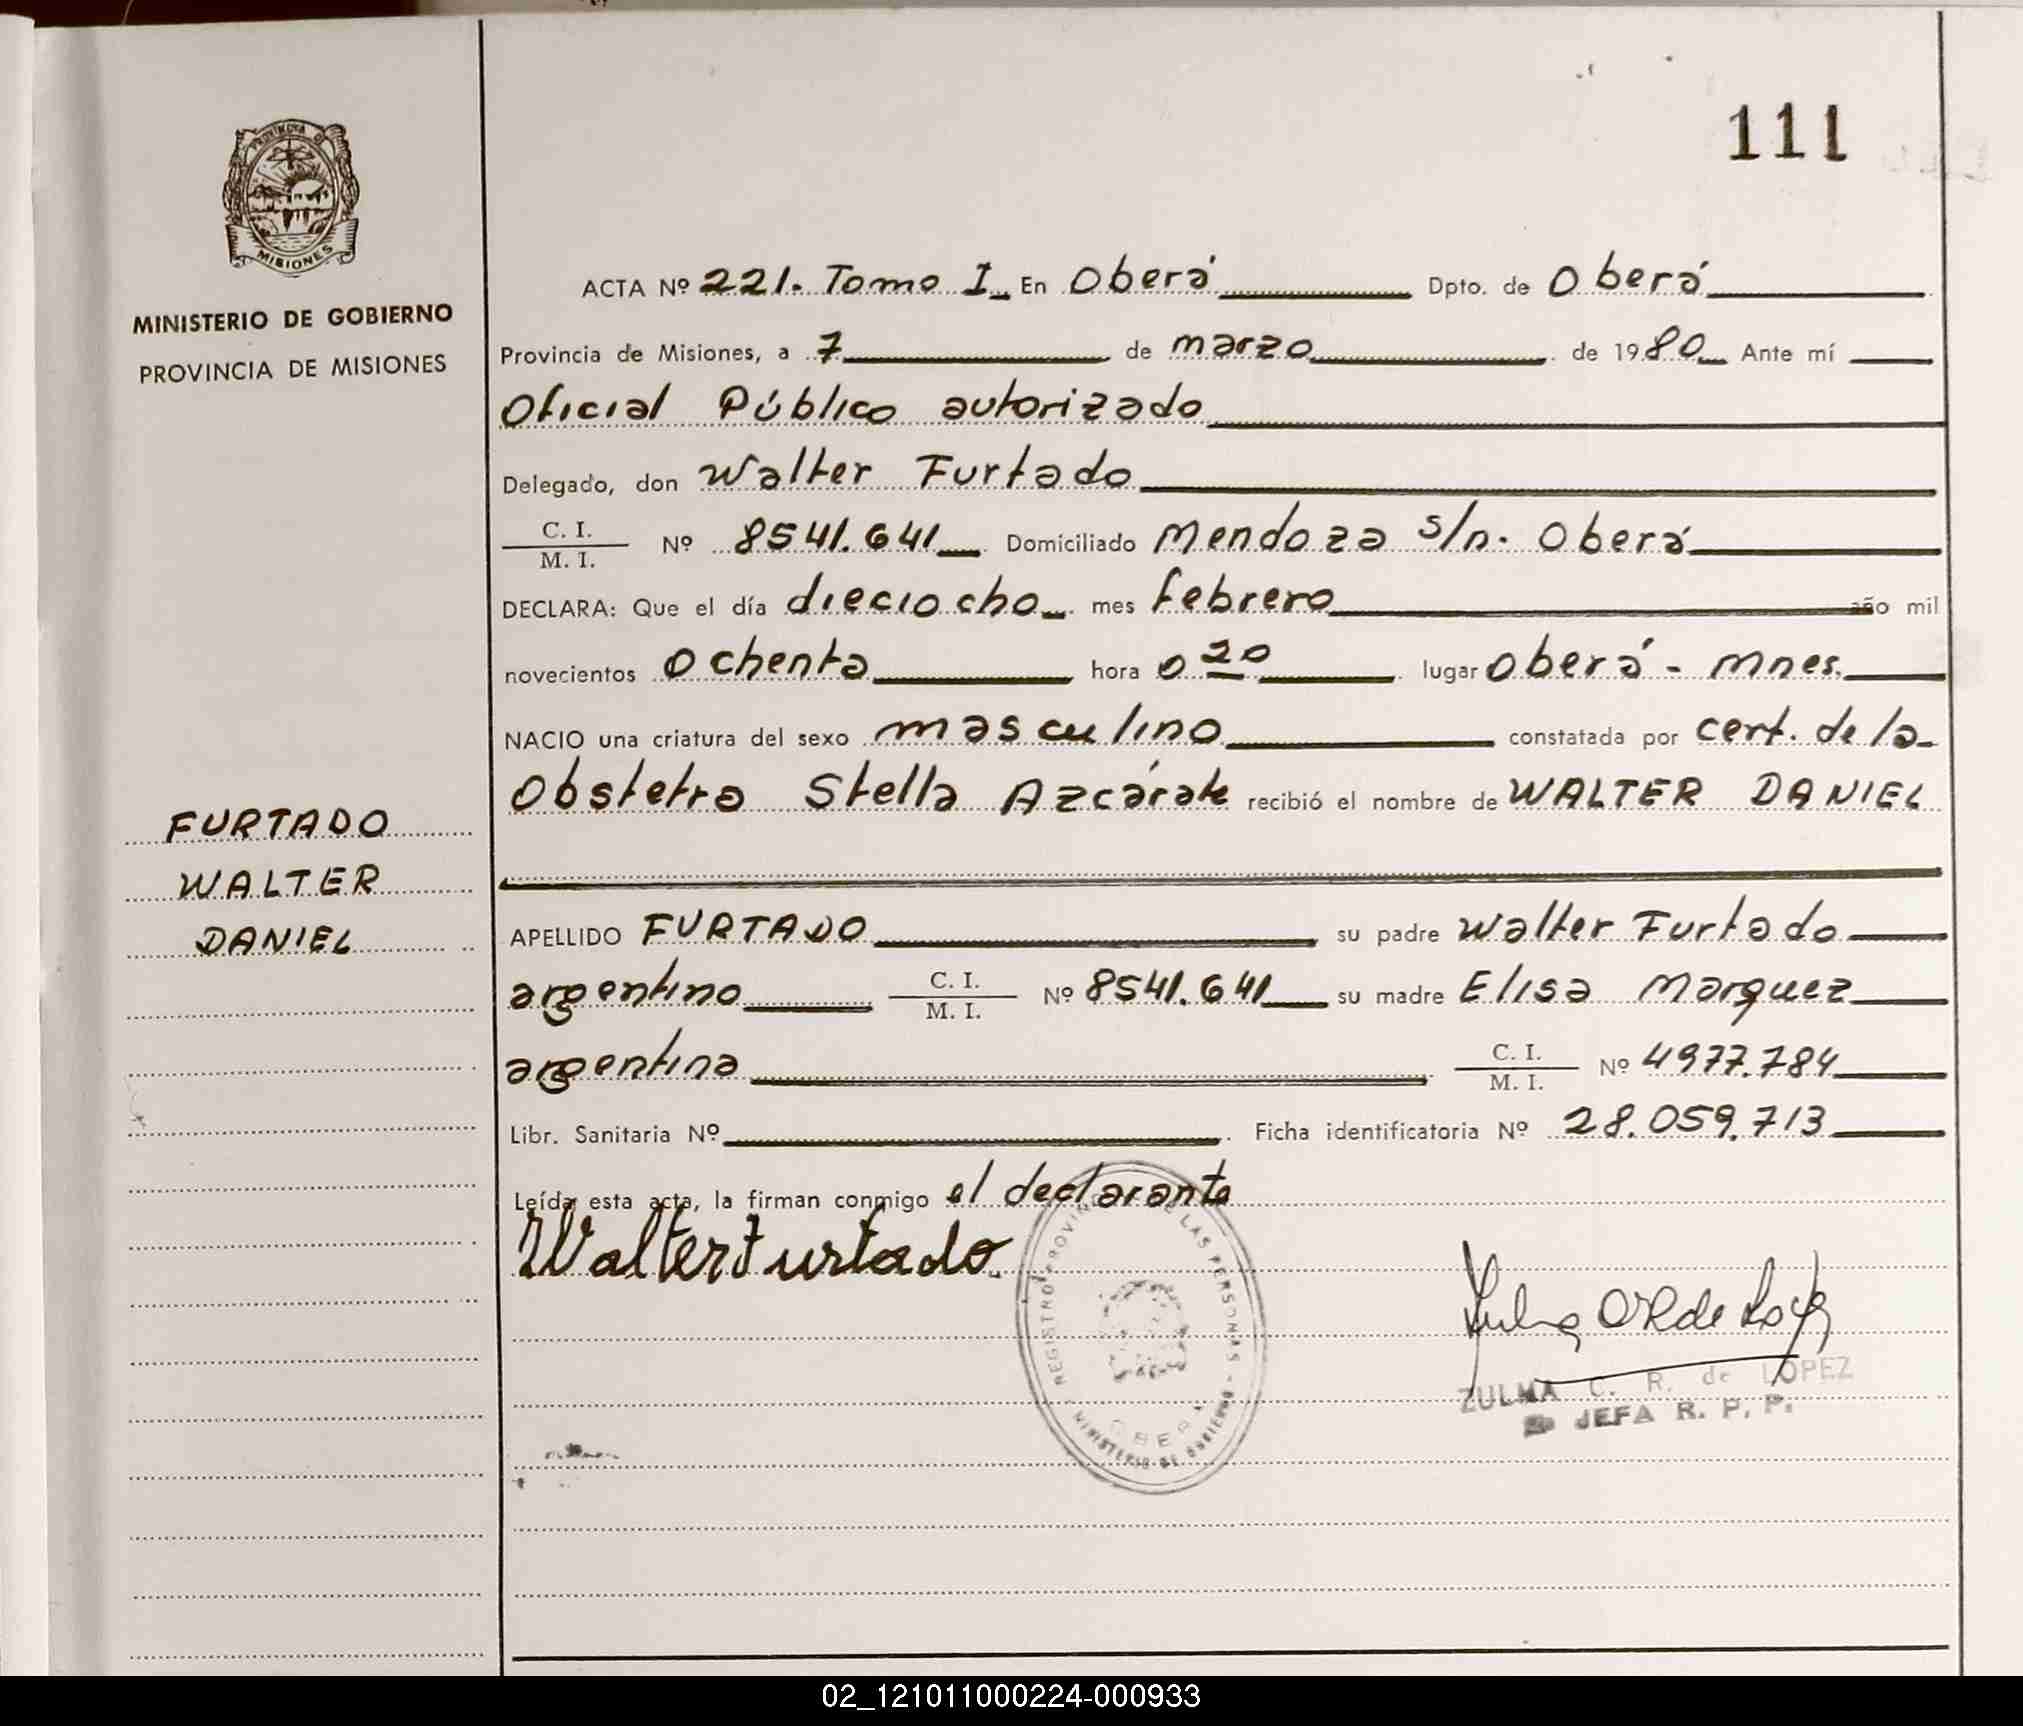 111
PROVINCIA DE
MISIONES
MINISTERIO DE GOBIERNO
PROVINCIA DE MISIONES
FURTADO
WALTER
DANIEL
ACTA Nº 221. Tomo I En Oberá Dpto. de Oberá
Provincia de Misiones, a 7 de marzo de 1980 Ante mí
Oficial Público autorizado
Delegado, don Walter Furtado
C. I.
M. I. Nº 8541.641 Domiciliado Mendoza s/n. Oberá
DECLARA: Que el día dieciocho mes febrero año mil
novecientos Ochenta hora 0 20 lugar Oberá - Mnes.
NACIO una criatura del sexo masculino constatada por cert. de la
Obstetra Stella Azcárate recibió el nombre de WALTER DANIEL
APELLIDO FURTADO su padre Walter Furtado
argentino C. I. M. I. Nº 8541.641 su madre Elisa Marquez
argentina C. I. M. I. Nº 4977.784
Libr. Sanitaria Nº Ficha identificatoria Nº 28.059.713
Leída esta acta, la firman conmigo el declarante
Walter Furtado
REGISTRO PROVINCIAL DE LAS PERSONAS - MINISTERIO DE GOBIERNO
OBERA
ZULMA C. R. de LOPEZ
JEFA R. P. P.
02_121011000224-000933